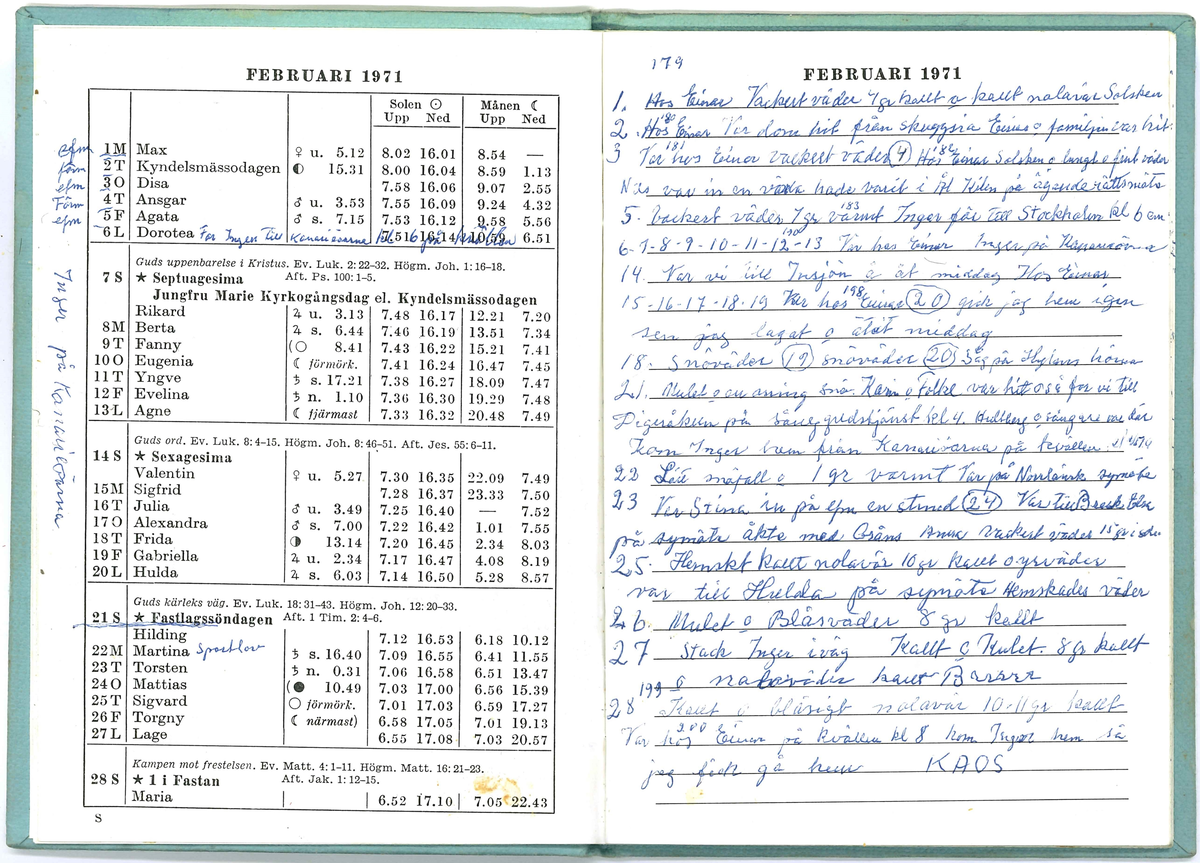 FEBRUARI 1971
Solen ☉ Månen ☾
Upp Ned Upp Ned
efm 1 M Max ♀ u. 5.12 8.02 16.01 8.54 —
förm 2 T Kyndelsmässodagen ◐ 15.31 8.00 16.04 8.59 1.13
efm 3 O Disa 7.58 16.06 9.07 2.55
Förm 4 T Ansgar ♂ u. 3.53 7.55 16.09 9.24 4.32
efm 5 F Agata ♂ s. 7.15 7.53 16.12 9.58 5.56
6 L Dorotea For Inger till Kanarieöarna 7.51 16.14 10.59 6.51
Guds uppenbarelse i Kristus. Ev. Luk. 2: 22-32. Högm. Joh. 1: 16-18.
7 S ★ Septuagesima Aft. Ps. 100: 1-5.
Jungfru Marie Kyrkogångsdag el. Kyndelsmässodagen
Rikard ♃ u. 3.13 7.48 16.17 12.21 7.20
8 M Berta ♃ s. 6.44 7.46 16.19 13.51 7.34
9 T Fanny (○ 8.41 7.43 16.22 15.21 7.41
10 O Eugenia ☾ förmörk. 7.41 16.24 16.47 7.45
11 T Yngve ♄ s. 17.21 7.38 16.27 18.09 7.47
12 F Evelina ♄ n. 1.10 7.36 16.30 19.29 7.48
13 L Agne ☾ fjärmast 7.33 16.32 20.48 7.49
Inger på Kanarieöarna
Guds ord. Ev. Luk. 8: 4-15. Högm. Joh. 8: 46-51. Aft. Jes. 55: 6-11.
14 S ★ Sexagesima
Valentin ♀ u. 5.27 7.30 16.35 22.09 7.49
15 M Sigfrid 7.28 16.37 23.33 7.50
16 T Julia ♂ u. 3.49 7.25 16.40 — 7.52
17 O Alexandra ♂ s. 7.00 7.22 16.42 1.01 7.55
18 T Frida ◑ 13.14 7.20 16.45 2.34 8.03
19 F Gabriella ♃ u. 2.34 7.17 16.47 4.08 8.19
20 L Hulda ♃ s. 6.03 7.14 16.50 5.28 8.57
Guds kärleks väg. Ev. Luk. 18: 31-43. Högm. Joh. 12: 20-33.
21 S ★ Fastlagssöndagen Aft. 1 Tim. 2: 4-6.
Hilding 7.12 16.53 6.18 10.12
22 M Martina Sportlov ♄ s. 16.40 7.09 16.55 6.41 11.55
23 T Torsten ♄ n. 0.31 7.06 16.58 6.51 13.47
24 O Mattias (● 10.49 7.03 17.00 6.56 15.39
25 T Sigvard ○ förmörk. 7.01 17.03 6.59 17.27
26 F Torgny ☾ närmast) 6.58 17.05 7.01 19.13
27 L Lage 6.55 17.08 7.03 20.57
Kampen mot frestelsen. Ev. Matt. 4: 1-11. Högm. Matt. 16: 21-23.
28 S ★ 1 i Fastan Aft. Jak. 1: 12-15.
Maria 6.52 17.10 7.05 22.43
S
179
FEBRUARI 1971
1. Hos Einar Vackert väder 4 gr kallt o kallt nolavär Solsken
180
2. Hos Einar Var dom hit från skuggsia Einar o familjen var hit.
181 182
3 Var hos Einar vackert väder (4) Hos Einar Solsken o lungt o fint väder
Nils var in en hade varit i Ål Kilen på ägande rättsmöte
183
5. Vackert väder 1 gr värmt Inger får till Stockholm kl 6 em
190
6-7-8-9-10-11-12-13 Var hos Einar Inger på Kanarieöarna
14. Var vi till Insjön o åt middag Hos Einar
198
15-16-17-18-19 Var hos Einar (20) gick jag hem igen
sen jag lagat o ätit middag
18. Snöväder (19) snöväder (20) Såg på Hylans hörna
21. Mulet o en aning snö Karin o Folke var hitt o så for vi till
Digeråkern på sånggudstjänst kl 4. Hultberg o sångare var där
Kom Inger hem från Kanarieöarna på kvällen
22 Lätt snöfall o 1 gr varmt Var på Norrlänsk symöte
23 Var Stina in på efm en stund (24) Var till Brasks Elsa
på symöte åkte med Gräns Anna vackert väder 15 gr i
25. Hemskt kallt nolavär 10 gr kallt o yrväder
var till Hulda på symöte Hemskades väder
26. Mulet o Blåsväder 8 gr kallt
27 Stack Inger iväg Kallt o Mulet. 8 gr kallt
o nolaväder kallt Barrr
199
28 Kallt o blåsigt nolavär 10-11 gr kallt
200
Var hos Einar på kvällen kl 8 kom Inger hem så
jag fick gå hem KAOS